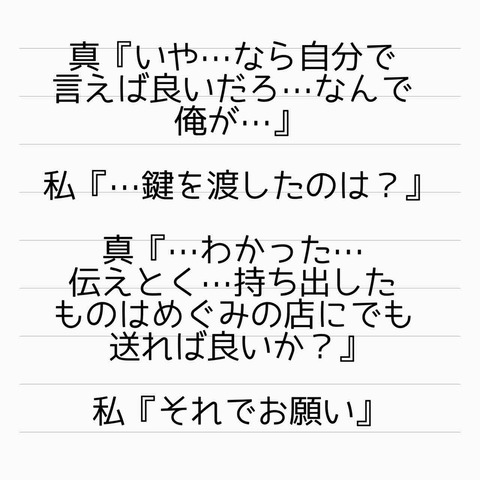 真『いや…なら自分で
言えば良いだろ…なんで
俺が…』
私『…鍵を渡したのは？』
真『…わかった…
伝えとく…持ち出した
ものはめぐみの店にでも
送れば良いか？』
私『それでお願い』